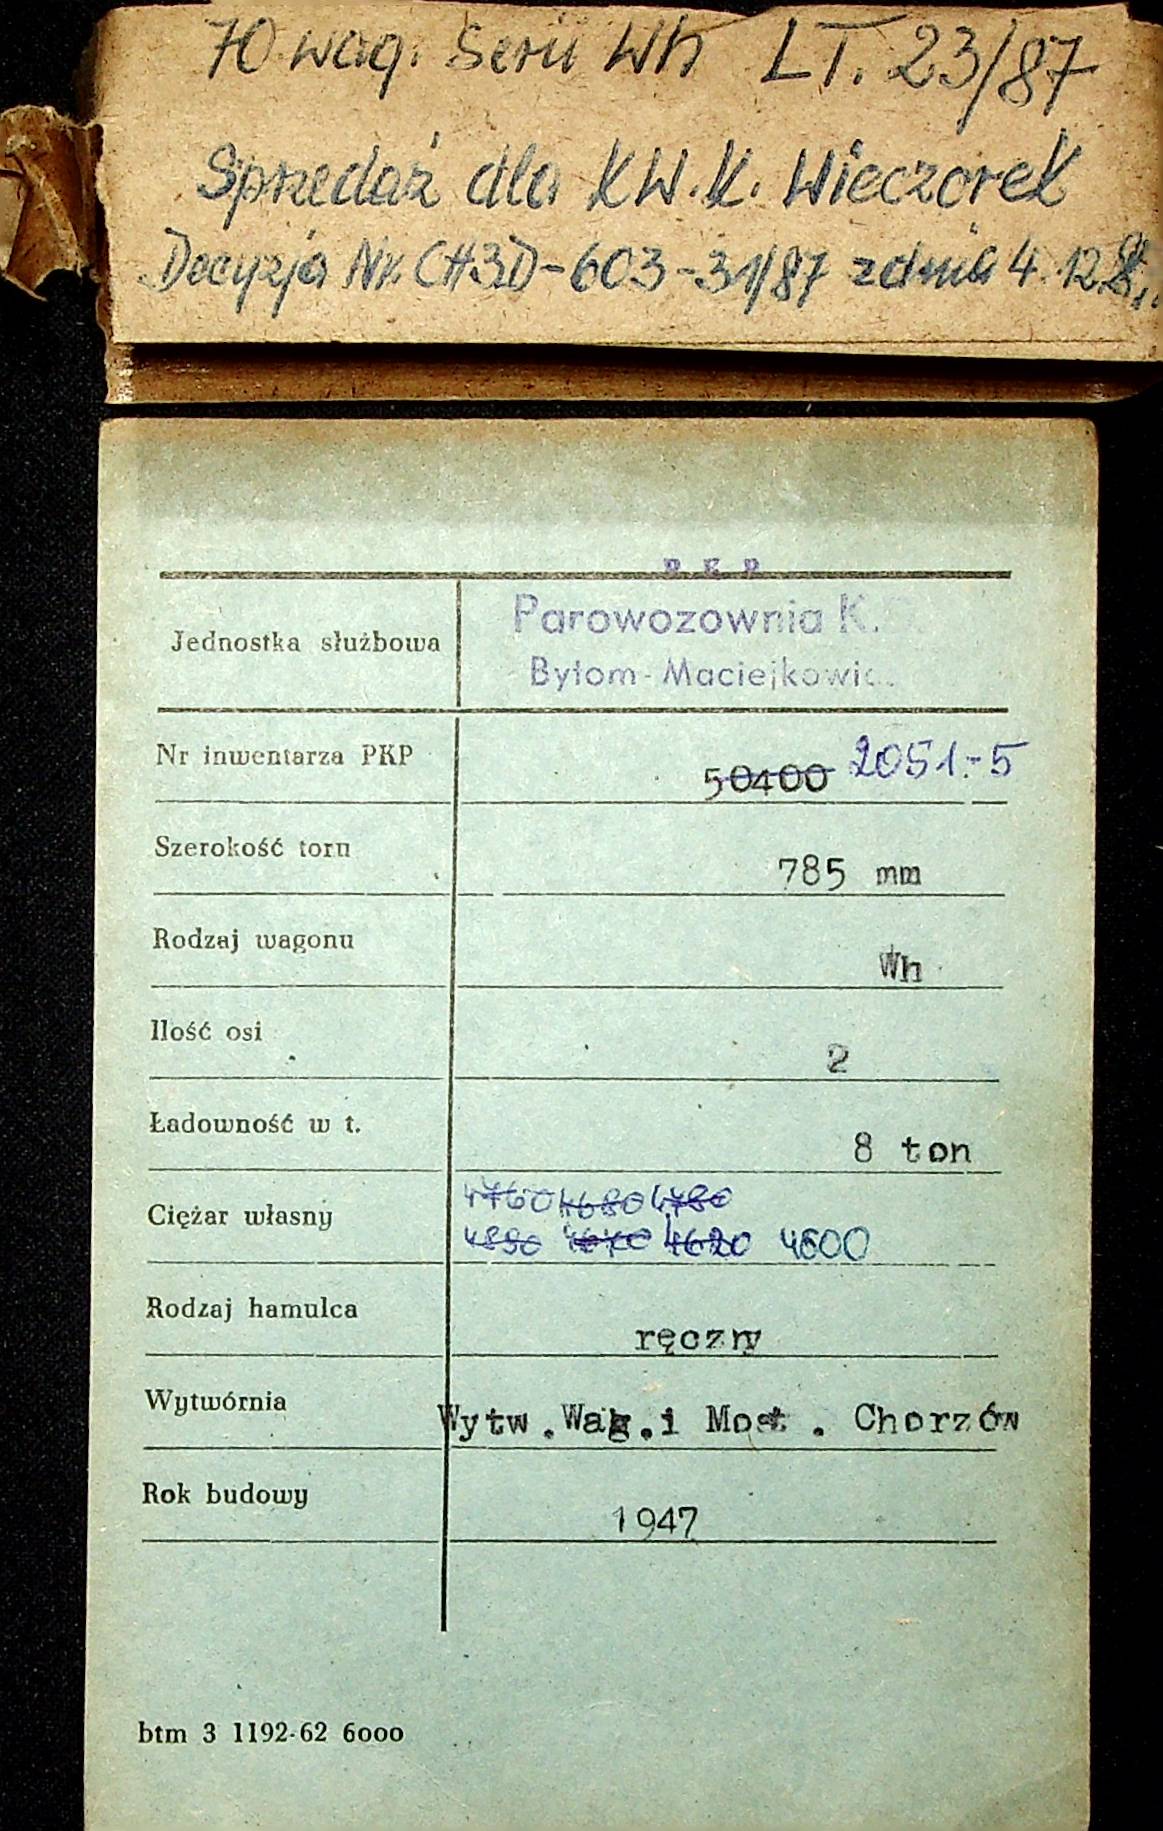 70 wag. Serii Wh LT. 23/87
Sprzedaż dla KW.K. Wieczorek
Decyzja Nr. CH3D-603-31/87 z dnia 4.12.
P K P
Jednostka służbowa
Parowozownia K.
Bytom-Maciejkowic
Nr inwentarza PKP 50400 2051-5
Szerokość toru 785 mm
Rodzaj wagonu Wh
Ilość osi 2
Ładowność w t. 8 ton
4760 4680 4780
Ciężar własny
4890 4670 4620 4600
Rodzaj hamulca ręczny
Wytwórnia Wytw.Wag.i Most. Chorzów
Rok budowy 1947
btm 3 1192-62 6000